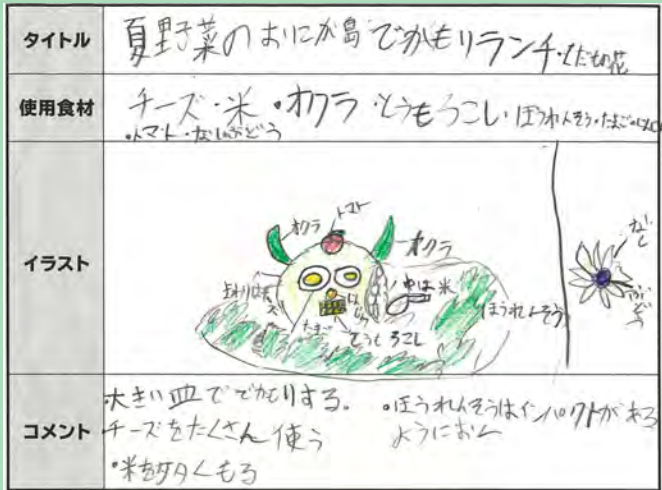 タイトル
夏野菜のおにが島でかもりランチ・くだもの花
使用食材
チーズ・米・オクラ・とうもろこし・ほうれんそう・たまご
・トマト・なし・ぶどう
イラスト
オクラ
トマト
オクラ
まわりはチーズ
中は米
ほうれんそう
たまご
とうもろこし
なし
ぶどう
コメント
大きい皿ででかもりする。
チーズをたくさん使う
・米を多くもる
・ほうれんそうはインパクトがある
ように